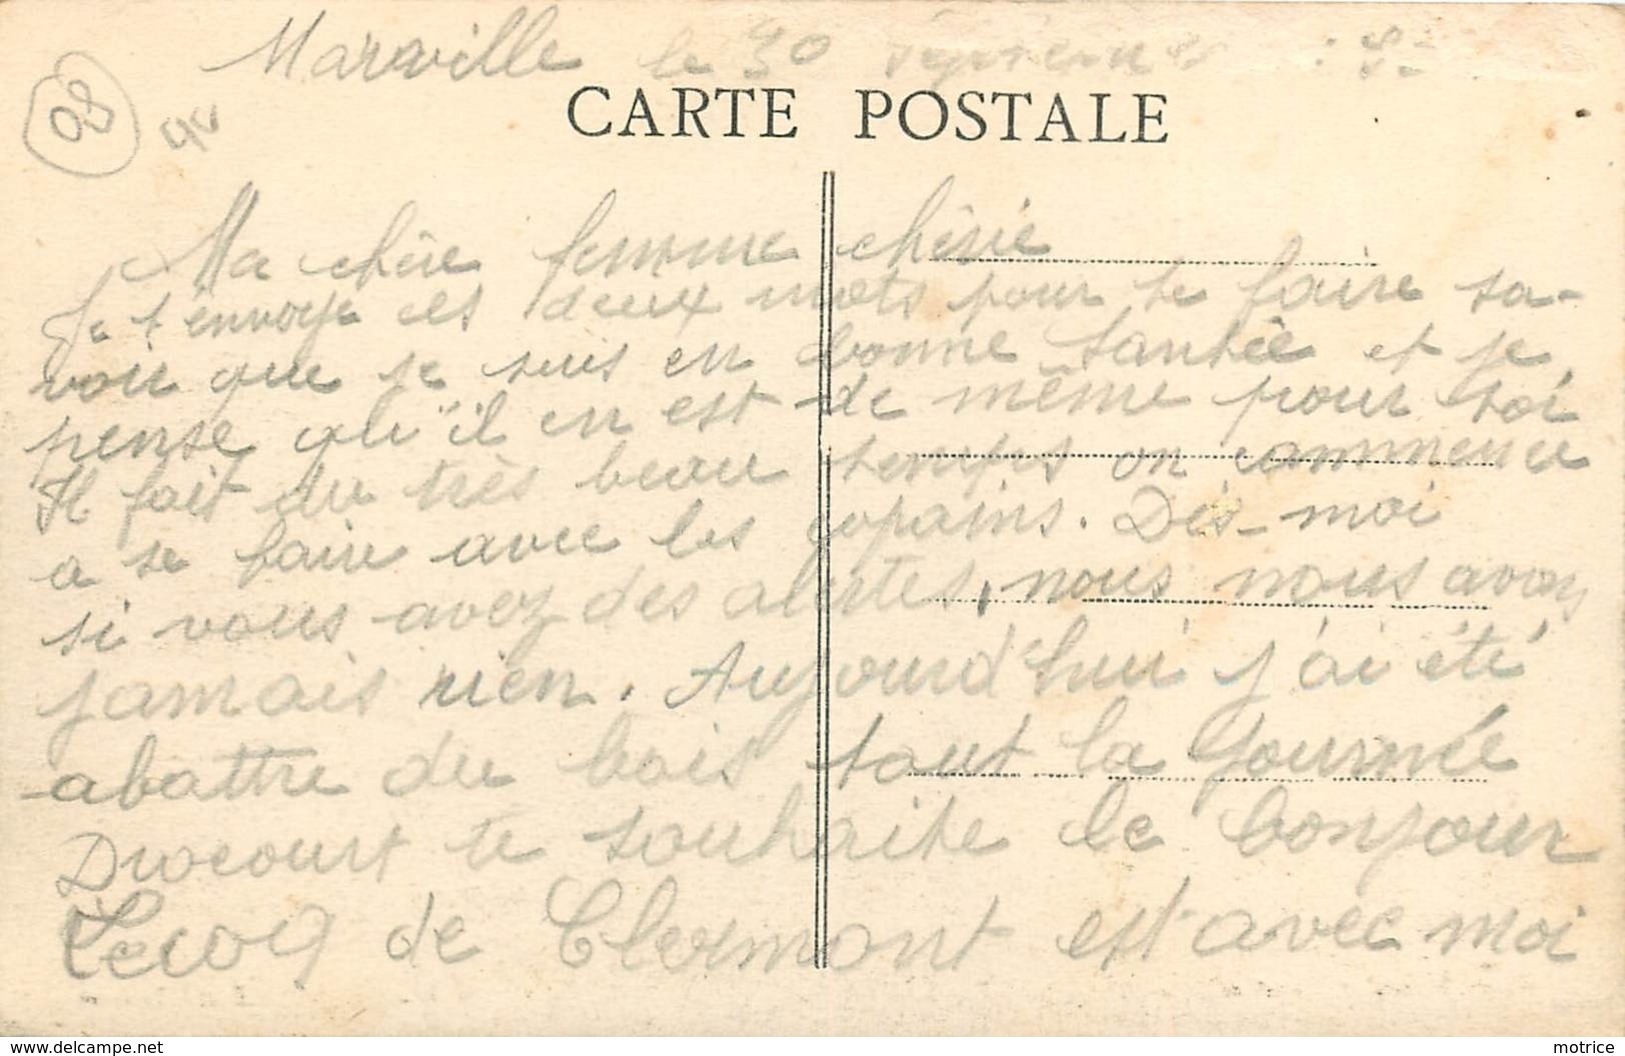 Marville le 30 septembre
08
CARTE POSTALE
Ma chère femme chérie
Je t'envoye ces deux mots pour te faire sa-
voir que je suis en bonne santée et je
pense qu'il en est de même pour toi
Il fait du très beau temps on commence
a se faire avec les copains. Dis-moi
si vous avez des alertes, nous nous avons
jamais rien. Aujourd'hui j'ai été
abattre du bois tout la journée
Drocourt te souhaite le bonjour
Lecoq de Clermont est avec moi
www.delcampe.net
motrice